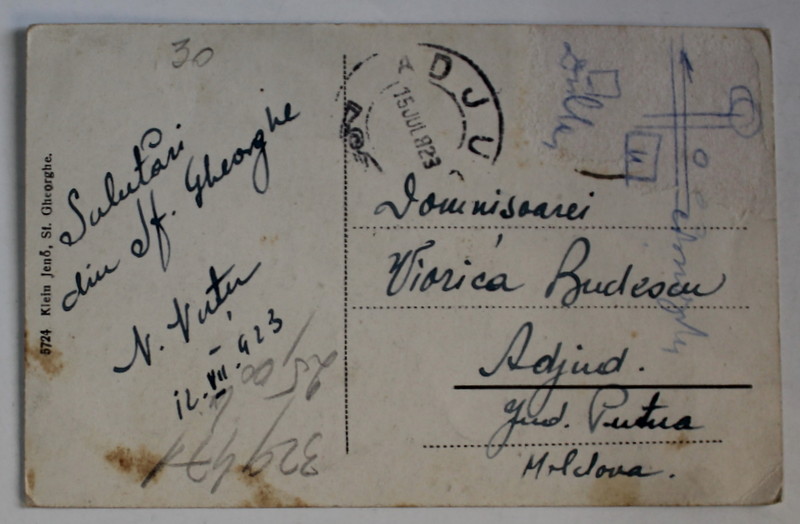 30
5724 Klein Jenő, St. Gheorghe.
Salutări
din Sf. Gheorghe
N.
12.VII.923
ADJU
15 JUL 923
Domnisoarei
Viorica Budescu
Adjud.
Jud. Putna
Moldova.
25,00
329/471